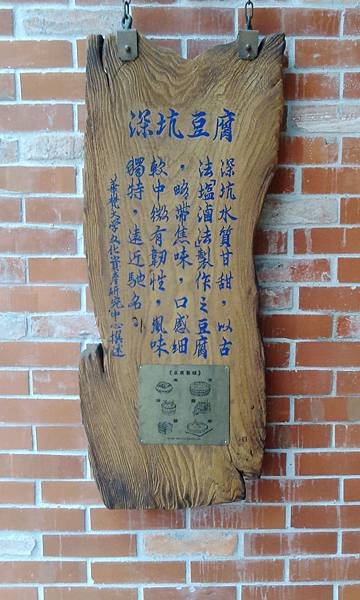 深坑豆腐
深坑水質甘甜，以古
法塩滷法製作之豆腐
，略帶焦味，口感細
軟中微有韌性，風味
獨特，遠近馳名。
華梵大學文化資產研究中心撰述